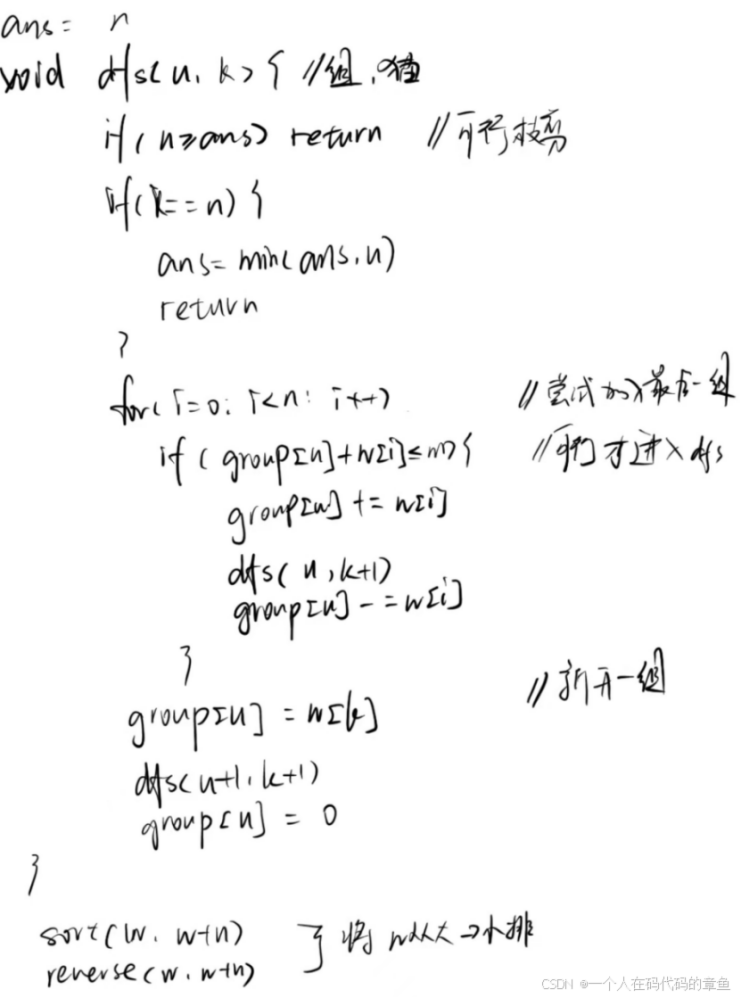 ans = n
void dfs(u, k) { //组,猫
if(u≥ans) return //可行枝剪
if(k==n) {
ans=min(ans,u)
return
}
for(i=0; i<n; i++) //尝试加入最后一组
if(group[u]+w[i]≤m){ //可行才进入dfs
group[u] += w[i]
dfs(u,k+1)
group[u] -= w[i]
}
group[u] = w[k] //新开一组
dfs(u+1,k+1)
group[u] = 0
}
sort(w, w+n) } 将w从大→小排
reverse(w, w+n)
CSDN @一个人在码代码的章鱼